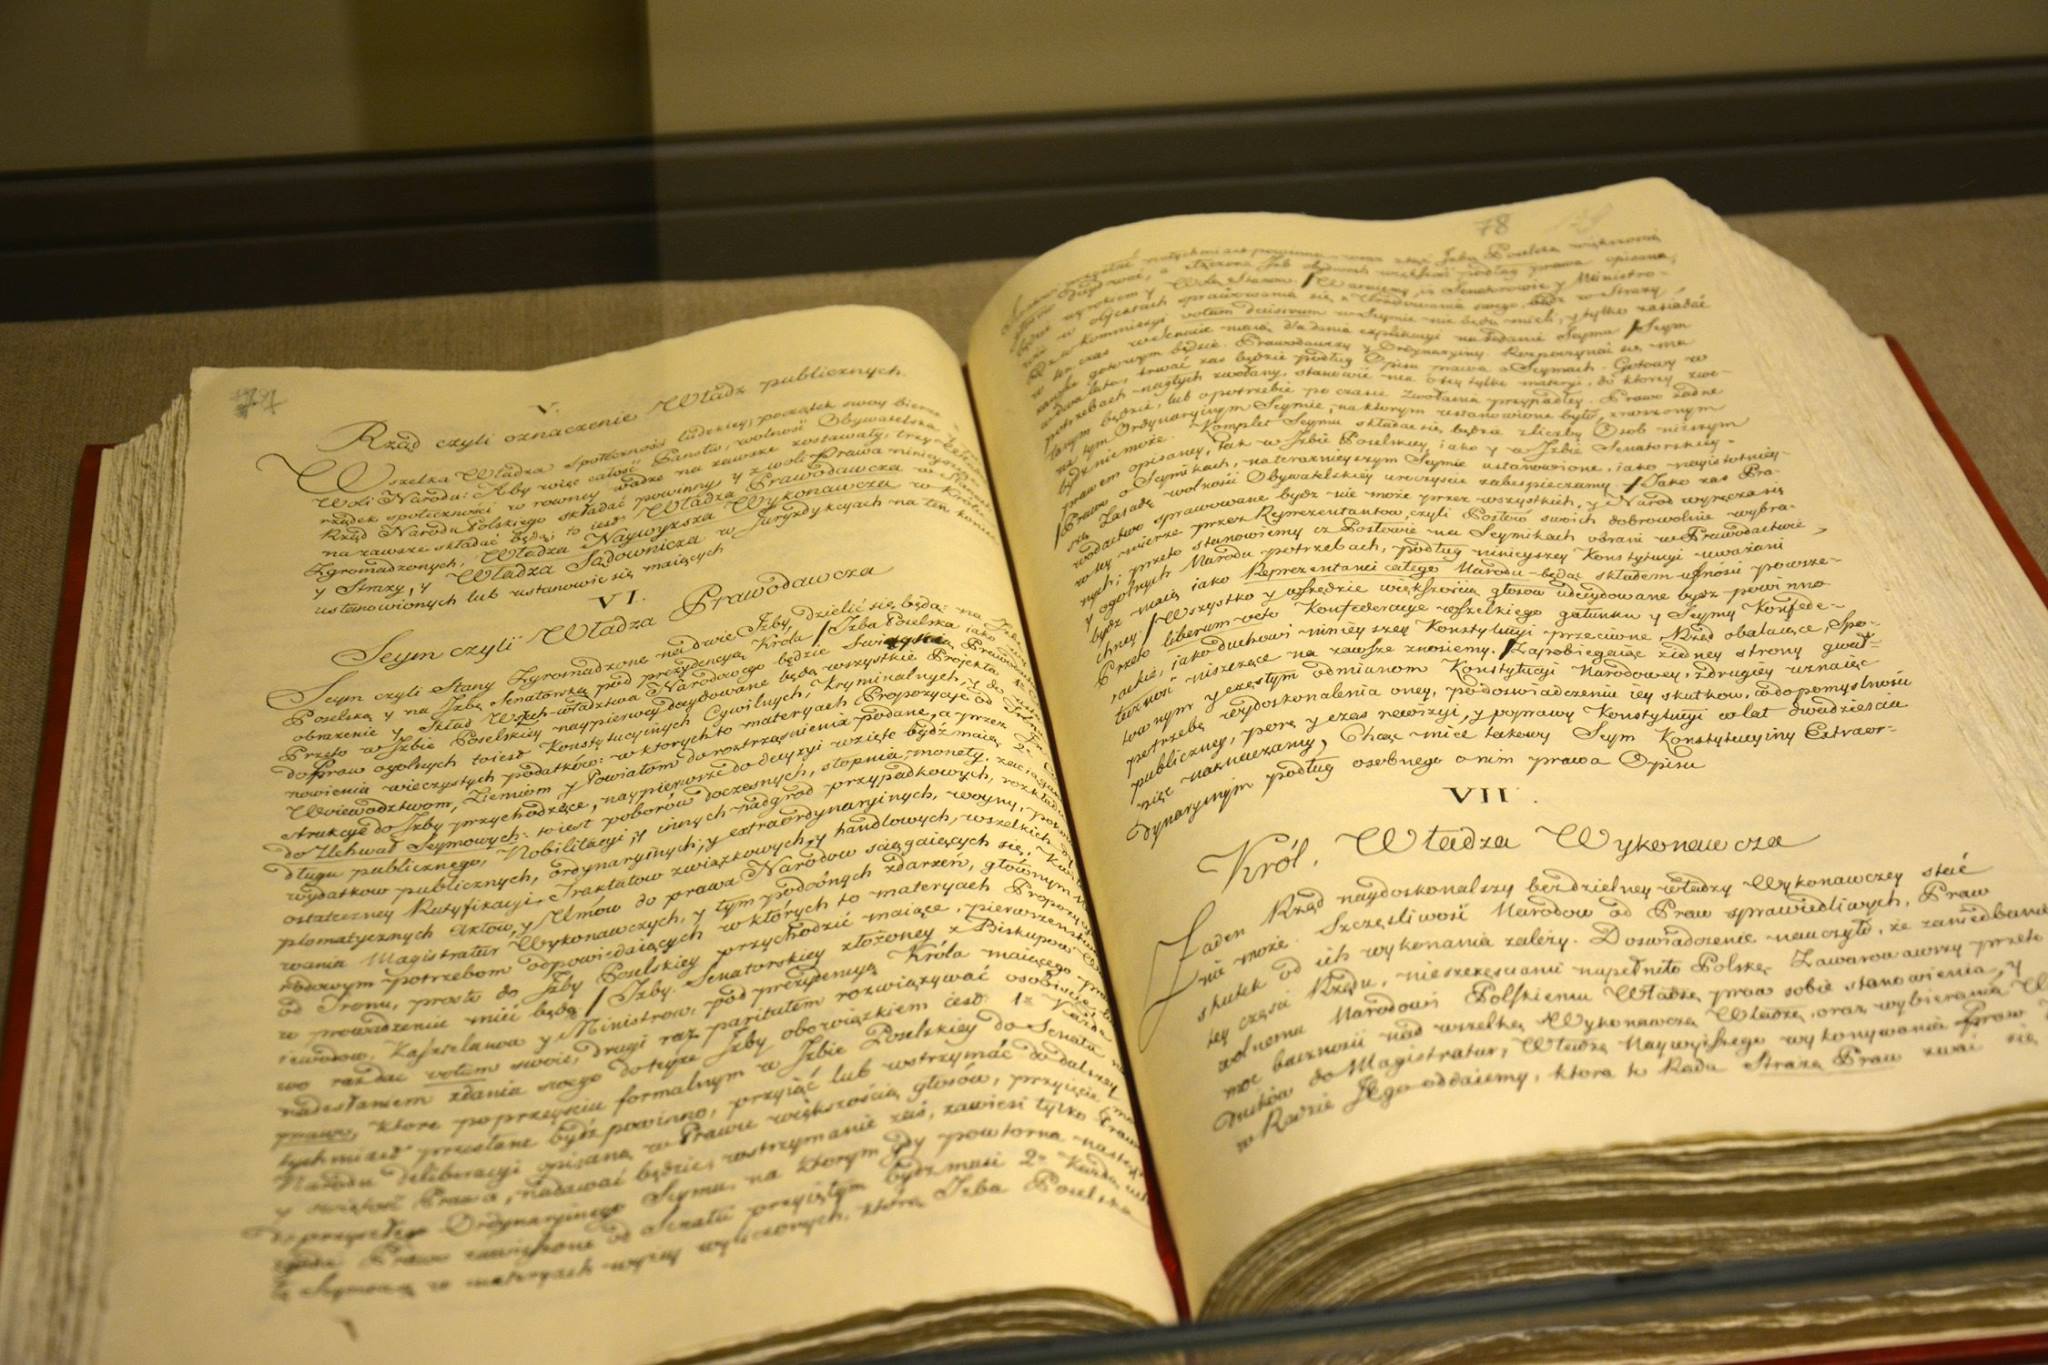 77
V.
Rząd czyli oznaczenie Władz publicznych.
Wszelka Władza społeczności ludzkiey, początek swoy bierze z
Woli Narodu: Aby więc całość Państw, wolność Obywatelska
rządek społeczności w rowney wadze na zawsze zostawały, trzy
Rząd Narodu Polskiego składać powinny, y z woli Prawa ninieyszego
na zawsze składać będą; to iest Władza Prawodawcza w Stanach
Zgromadzonych, Władza Naywyższa Wykonawcza w Królu
y Straży, y Władza Sądownicza w Jurydykcyach na ten koniec
ustanowionych lub ustanowić się maiących
VI.
Seym czyli Władza Prawodawcza
Seym czyli Stany Zgromadzone na dwie Izby, dzielić się będą: na Izbę
Poselską y na Izbę Senatorską pod prezydencyą Króla / Izba Poselska iako
obrażenie y Skład Wszechwładztwa Narodowego będzie Świątynią Prawodawstwa
Przeto w Izbie Poselskiey naypierwey decydowane będą wszystkie Projekta
do Praw ogolnych toiest Konstytucyinych Cywilnych, Kryminalnych, y do
nowienia wieczystych podatków: w ktorych to materyach Propozycye od
Woiewodztwom, Ziemiom y Powiatom do roztrząśnienia podane, a przez
strukcye do Izby przychodzące, naypierwsze do decyzyi wzięte bydź maią
do Uchwał Seymowych: toiest poborów doczesnych, stopnia monety, zaciągania
długu publicznego, Nobilitacyi, y innych nadgrod przypadkowych, rozkładu
wydatkow publicznych, ordynaryinych, y extraordynaryinych, woyny, pokoiu
ostateczney Ratyfikacyi Traktatow związkowych, y handlowych, wszelkich
plomatycznych Aktow, y Umów do prawa Narodow ściągaiących się,
wania Magistratur Wykonawczych, y tym podobnych zdarzeń, głównym
rodowym potrzebom odpowiedaiących w których to materyach Propozycye
od Tronu, prosto do Izby Poselskiey przychodzić maiące, pierwszeństwo
w prowadzeniu mieć będą / Izby Senatorskiey złożoney z Biskupow
iewodow, Kasztelanow y Ministrow, pod prezydencyą Króla maiącego prawo
wo raz dać votum swoie, drugi raz paritatem rozwiązywać osobiście
nadesłaniem zdania swego do teyże Izby obowiązkiem iest 1º Każde
prawo, ktore po przeyściu formalnym w Izbie Poselskiey do Senatu na
tychmiast przesłane bydź powinno, przyiąć lub wstrzymać do dalszey
Narodu deliberacyi opisaną w Prawie większością głosów, przyięcie moc
y świętość Prawa, nadawać będzie, wstrzymanie zaś, zawiesi tylko Prawo
do przyszłego Ordynaryinego Seymu, na ktorym gdy powtorna nastąpi
zgoda Prawo zawieszone od Senatu przyiętym bydź musi 2º Każdą
łę Seymową w materyach wyżey wyliczonych, którą Izba Poselska
78
Senatowi przesłać natychmiast powinna, wraz z tąż Izbą Poselską większością
głosów decydować, a złączona Izb obydwóch większość podług prawa opisana,
będzie wyrokiem y Wolą Stanow. / Waruiemy, iż Senatorowie y Ministro-
wie w obiektach sprawowania się z Urzędowania swego bądź w Straży
bądź w Kommissyi votum decisivum w Seymie nie będą mieli, y tylko zasiadać
w ten czas w Senacie maią dla dania explikacyi na żądanie Seymu / Seym
zawsze gotowym będzie. Prawodawczy y Ordynaryiny. Rozpoczynać się ma
co dwa lata, trwać zaś będzie podług Opisu prawa o Seymach. Gotowy w
potrzebach nagłych zwołany, stanowić ma o tey tylko materyi, do ktorey zwo-
łanym będzie, lub o potrzebie po czasie zwołania przypadłey. Prawo żadne
na tym Ordynaryinym Seymie, na ktorym ustanowione było, znoszonym
bydź nie może. Komplet Seymu składać się będzie z liczby Osob niższym
prawem opisaney, tak w Izbie Poselskiey, iako y w Izbie Senatorskiey.
/ Prawo o Seymikach, na teraznieyszym Seymie ustanowione, iako nayistotniey-
szą Zasadę wolności Obywatelskiey uroczyście zabespieczamy. / Jako zaś Pra-
wodastwo sprawowane bydź nie może przez wszystkich, y Narod wyręcza się
w tey mierze przez Reprezentantow, czyli Posłow swoich dobrowolnie wybra-
nych; przeto stanowiemy iż Posłowie na Seymikach obrani w Prawodastwie,
y ogolnych Narodu potrzebach, podług ninieyszey Konstytucyi uważani
bydź maią iako Reprezentanci całego Narodu będąc składem ufności powsze-
chney. / Wszystko y wszędzie większością głosow udecydowane bydź powinno
Przeto liberum veto Konfederacye wszelkiego gatunku y Seymy Konfede-
rackie, iako duchowi ninieyszey Konstytucyi przeciwne Rząd obalaiące, Spo-
łeczność niszczące na zawsze znosiemy. / Zapobiegaiąc z iedney strony gwał-
townym y częstym odmianom Konstytucyi Narodowey, z drugiey uznaiąc
potrzebę wydoskonalenia oney, po doświadczeniu iey skutkow, co do pomyślności
publiczney, porę y czas rewizyi, y poprawy Konstytucyi co lat dwadzieścia
pięć naznaczamy, Chcąc mieć takowy Seym Konstytucyiny Extraor-
dynaryinym podług osobnego o nim prawa Opisu
VII.
Król, Władza Wykonawcza
Żaden Rząd naydoskonalszy bez dzielney władzy Wykonawczey stać
nie może. Szczęśliwość Narodow od Praw sprawiedliwych, Praw
skutek od ich wykonania zależy. Doświadczenie nauczyło, że zaniedbanie
tey części Rządu, nieszczęściami napełniło Polskę Zawarowawszy przeto
wolnemu Narodowi Polskiemu Władzę praw sobie stanowienia, y
moc baczności nad wszelką Wykonawczą Władzę, oraz wybierania
dników do Magistratur, Władzę Naywyższego wykonywania Praw
w Radzie Jego oddaiemy, ktora to Rada Strażą Praw zwać się